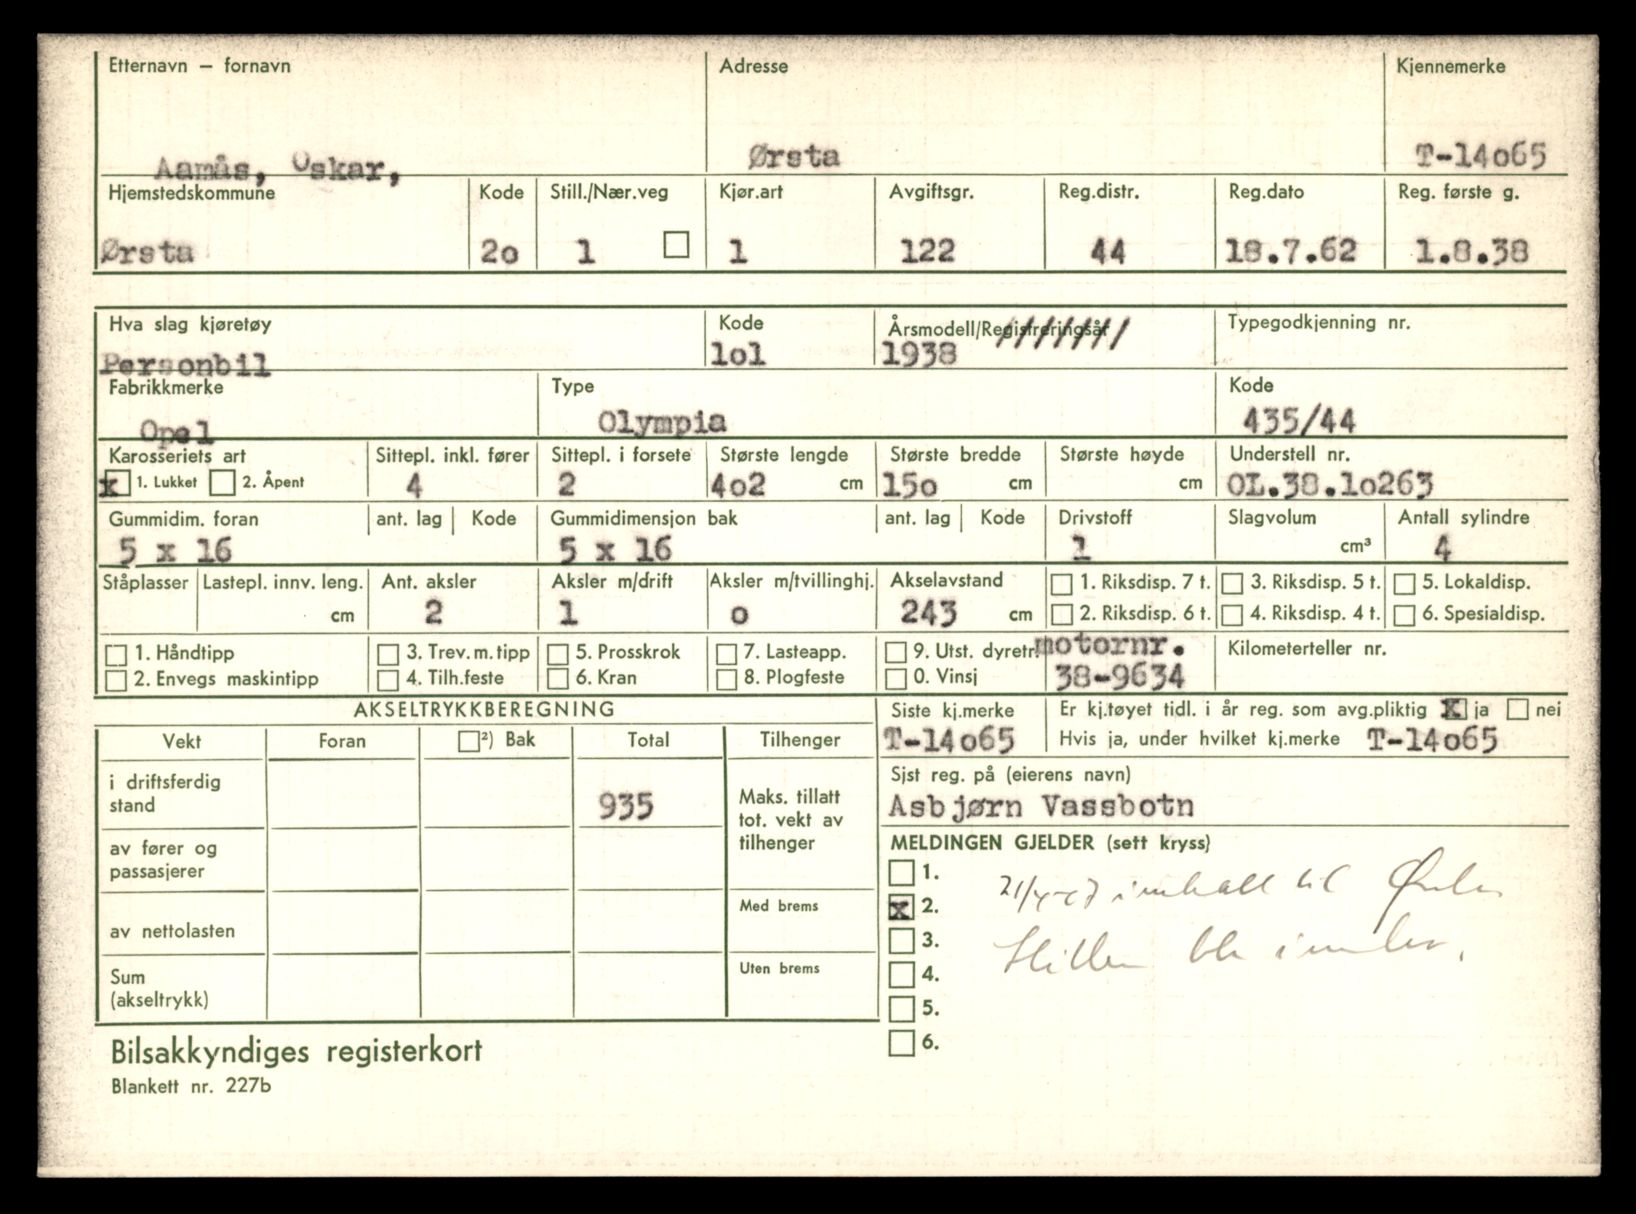 Etternavn — fornavn Adresse Kjennemerke
Aamås, Oskar, Ørsta T-14o65
Hjemstedskommune Kode Still./Nær.veg Kjør.art Avgiftsgr. Reg.distr. Reg.dato Reg. første g.
Ørsta 2o 1 1 122 44 18.7.62 1.8.38
Hva slag kjøretøy Kode Årsmodell/Registreringsår Typegodkjenning nr.
Personbil lol 1938
Fabrikkmerke Type Kode
Opel Olympia 435/44
Karosseriets art Sittepl. inkl. fører Sittepl. i forsete Største lengde Største bredde Største høyde Understell nr.
x 1. Lukket 2. Åpent 4 2 4o2 cm 15o cm cm OL.38.1o263
Gummidim. foran ant. lag Kode Gummidimensjon bak ant. lag Kode Drivstoff Slagvolum Antall sylindre
5 x 16 5 x 16 1 cm³ 4
Ståplasser Lastepl. innv. leng. Ant. aksler Aksler m/drift Aksler m/tvillinghj. Akselavstand 1. Riksdisp. 7 t. 3. Riksdisp. 5 t. 5. Lokaldisp.
cm 2 1 o 243 cm 2. Riksdisp. 6 t. 4. Riksdisp. 4 t. 6. Spesialdisp.
1. Håndtipp 3. Trev. m. tipp 5. Prosskrok 7. Lasteapp. 9. Utst. dyretr. motornr. Kilometerteller nr.
2. Envegs maskintipp 4. Tilh.feste 6. Kran 8. Plogfeste 0. Vinsj 38-9634
AKSELTRYKKBEREGNING Siste kj.merke Er kj.tøyet tidl. i år reg. som avg.pliktig x ja nei
Vekt Foran ²) Bak Total Tilhenger T-14o65 Hvis ja, under hvilket kj.merke T-14o65
i driftsferdig stand 935 Maks. tillatt tot. vekt av tilhenger
Sist reg. på (eierens navn)
Asbjørn Vassbotn
av fører og passasjerer
MELDINGEN GJELDER (sett kryss)
1.
av nettolasten Med brems x 2.
3.
Sum (akseltrykk) Uten brems 4.
5.
Bilsakkyndiges registerkort 6.
Blankett nr. 227b